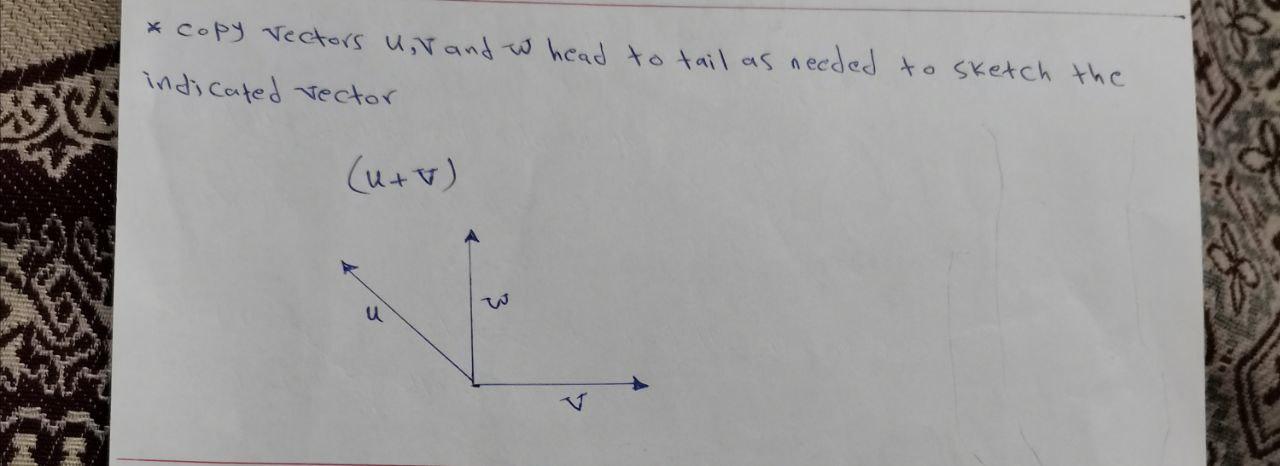 * copy vectors u, v and w head to tail as needed to sketch the
indicated vector
(u+v)
w
u
v